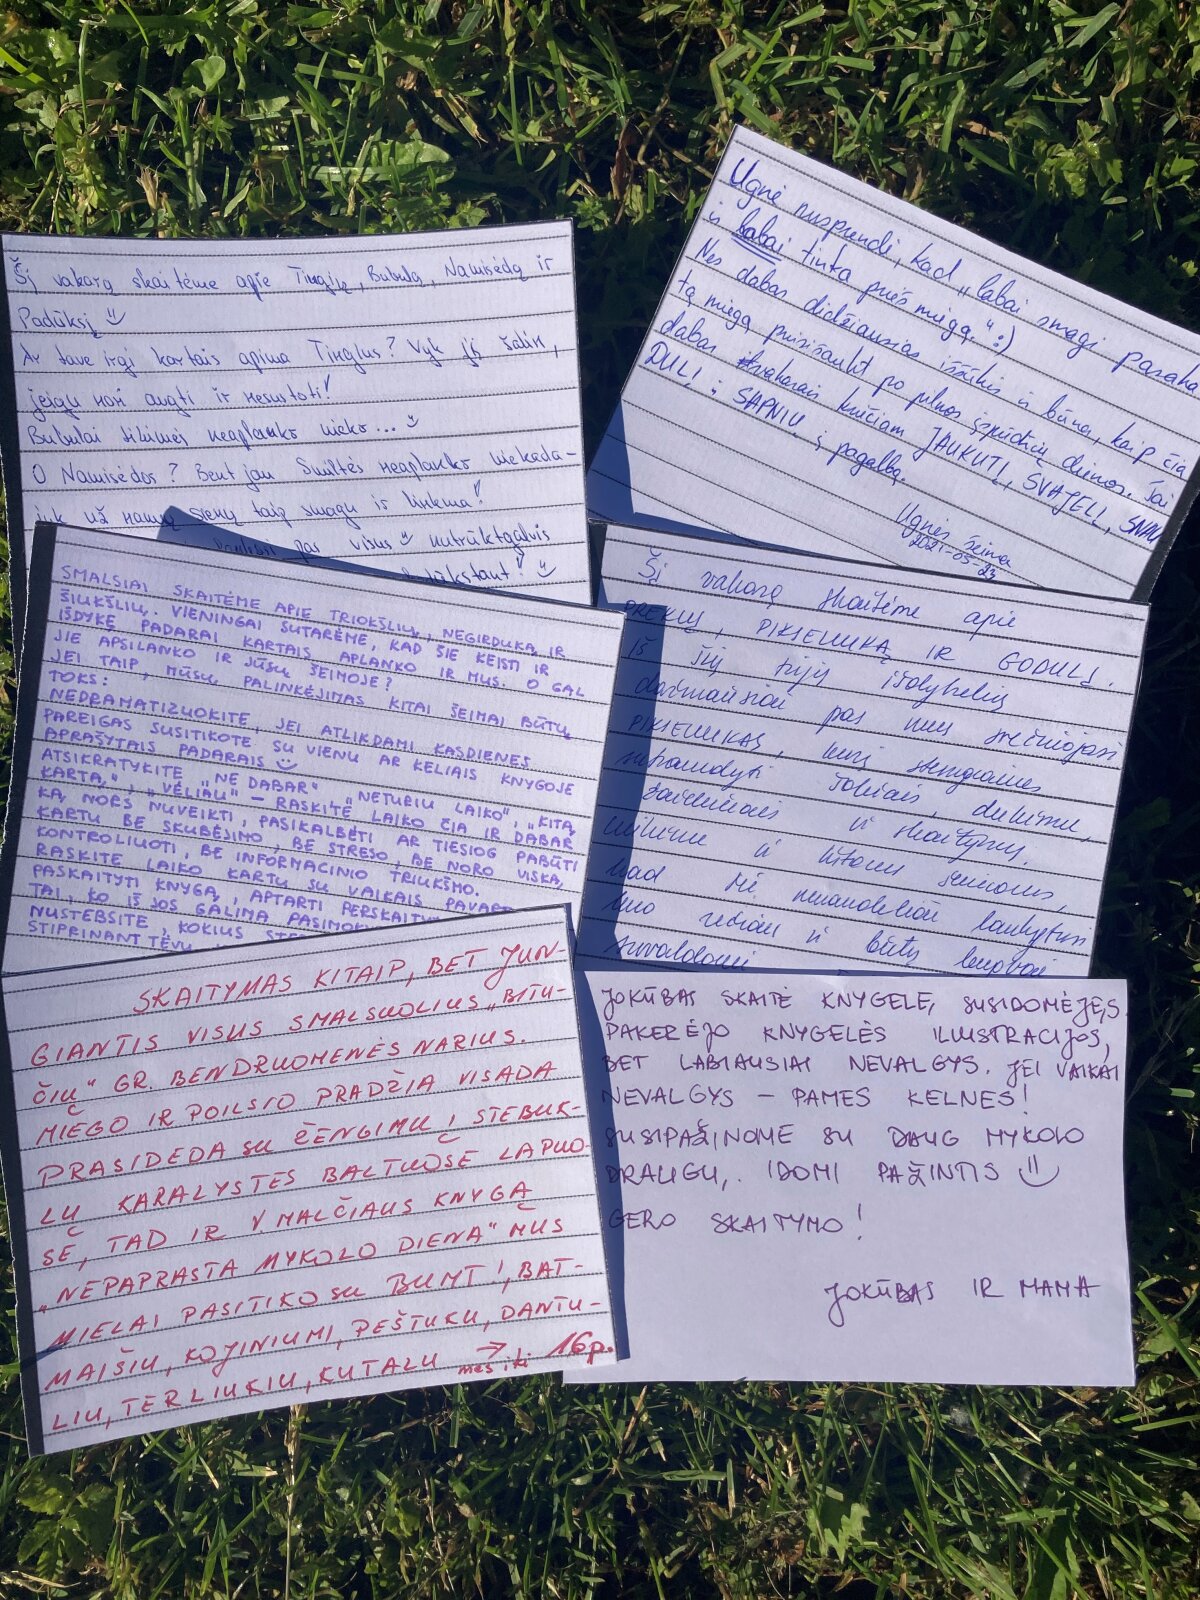 Šį vakarą skaitėme apie Tinglių, Bubulą, Namisėdą ir
Padūksį
Ar tave irgi kartais apima Tinglus? Vyk jį šalin,
jeigu nori augti ir nesustoti!
Bubulai šilimės neaplanko nieko...
O Namisėdos? Bent jau Smiltės neaplanko niekada –
juk už namų sienų taip smagu ir linksma!
pas visus nutrūktgalvis
Ugnė nusprendė, kad „labai smagi pasaka
ir labai tinka prieš miegą." :)
Nes dabar didžiausias iššūkis ir būna, kaip čia
tą miegą prisišaukt po pilnos įspūdžių dienos. Tai
dabar vakarais kviečiam JAUKUTĮ, SVAJELĮ, SNAU
DULĮ ir SAPNIŲ į pagalbą.
Ugnės šeima
2021-05-23
SMALSIAI SKAITĖME APIE TRIOKŠLIŲ, NEGIRDUKĄ IR
ŠIUKŠLIŲ. VIENINGAI SUTARĖME, KAD ŠIE KEISTI IR
IŠDYKĘ PADARAI KARTAIS APLANKO IR MUS. O GAL
JIE APSILANKO IR JŪSŲ ŠEIMOJE?
JEI TAIP, MŪSŲ PALINKĖJIMAS KITAI ŠEIMAI BŪTŲ
TOKS:
NEDRAMATIZUOKITE, JEI ATLIKDAMI KASDIENES
PAREIGAS SUSITIKOTE SU VIENU AR KELIAIS KNYGOJE
APRAŠYTAIS PADARAIS
ATSIKRATYKITE „NE DABAR" „NETURIU LAIKO", „KITĄ
KARTĄ", „VĖLIAU" – RASKITE LAIKO ČIA IR DABAR
KĄ NORS NUVEIKTI, PASIKALBĖTI AR TIESIOG PABŪTI
KARTU BE SKUBĖJIMO, BE STRESO, BE NORO VISKĄ
KONTROLIUOTI, BE INFORMACINIO TRIUKŠMO.
RASKITE LAIKO KARTU SU VAIKAIS
PASKAITYTI KNYGĄ, APTARTI
TAI, KO IŠ JOS GALIMA
NUSTEBSITE, KOKIUS
STIPRINANT TĖVŲ
Šį vakarą skaitėme apie
PREKIŲ, PIKIELIUKĄ IR GODULĮ.
Iš šių trijų išdykėlių
dažniausiai pas mus svečiuojasi
PIKIELIUKAS, kurį stengiamės
sutramdyti žodžiais, dėkime,
žaisliukais ir skaitymu.
Linkime ir kitoms šeimoms,
kad šie nenaudėliai lankytųsi
kuo rečiau ir būtų lengvai
suvaldomi
SKAITYMAS KITAIP, BET JUN-
GIANTIS VISUS SMALSUOLIUS „BITU-
ČIŲ" GR. BENDRUOMENĖS NARIUS.
MIEGO IR POILSIO PRADŽIA VISADA
PRASIDEDA SU ŽENGIMU Į STEBUK-
LŲ KARALYSTĘS BALTUOSE LAPUO-
SE, TAD IR V. MALČIAUS KNYGA
„NEPAPRASTA MYKOLO DIENA" MUS
MIELAI PASITIKO SU BUMT!, BAT-
MAIŠIU, KOJINIUMI, PEŠTUKU, DANTU-
LIU, TERLIUKIU, KUTALU → mes iki 16p.
JOKŪBAS SKAITĖ KNYGELĘ, SUSIDOMĖJĘS.
PAKERĖJO KNYGELĖS ILIUSTRACIJOS,
BET LABIAUSIAI NEVALGYS. JEI VAIKAI
NEVALGYS – PAMES KELNES!
SUSIPAŽINOME SU DAUG MYKOLO
DRAUGŲ. ĮDOMI PAŽINTIS
GERO SKAITYMO!
JOKŪBAS IR MAMA